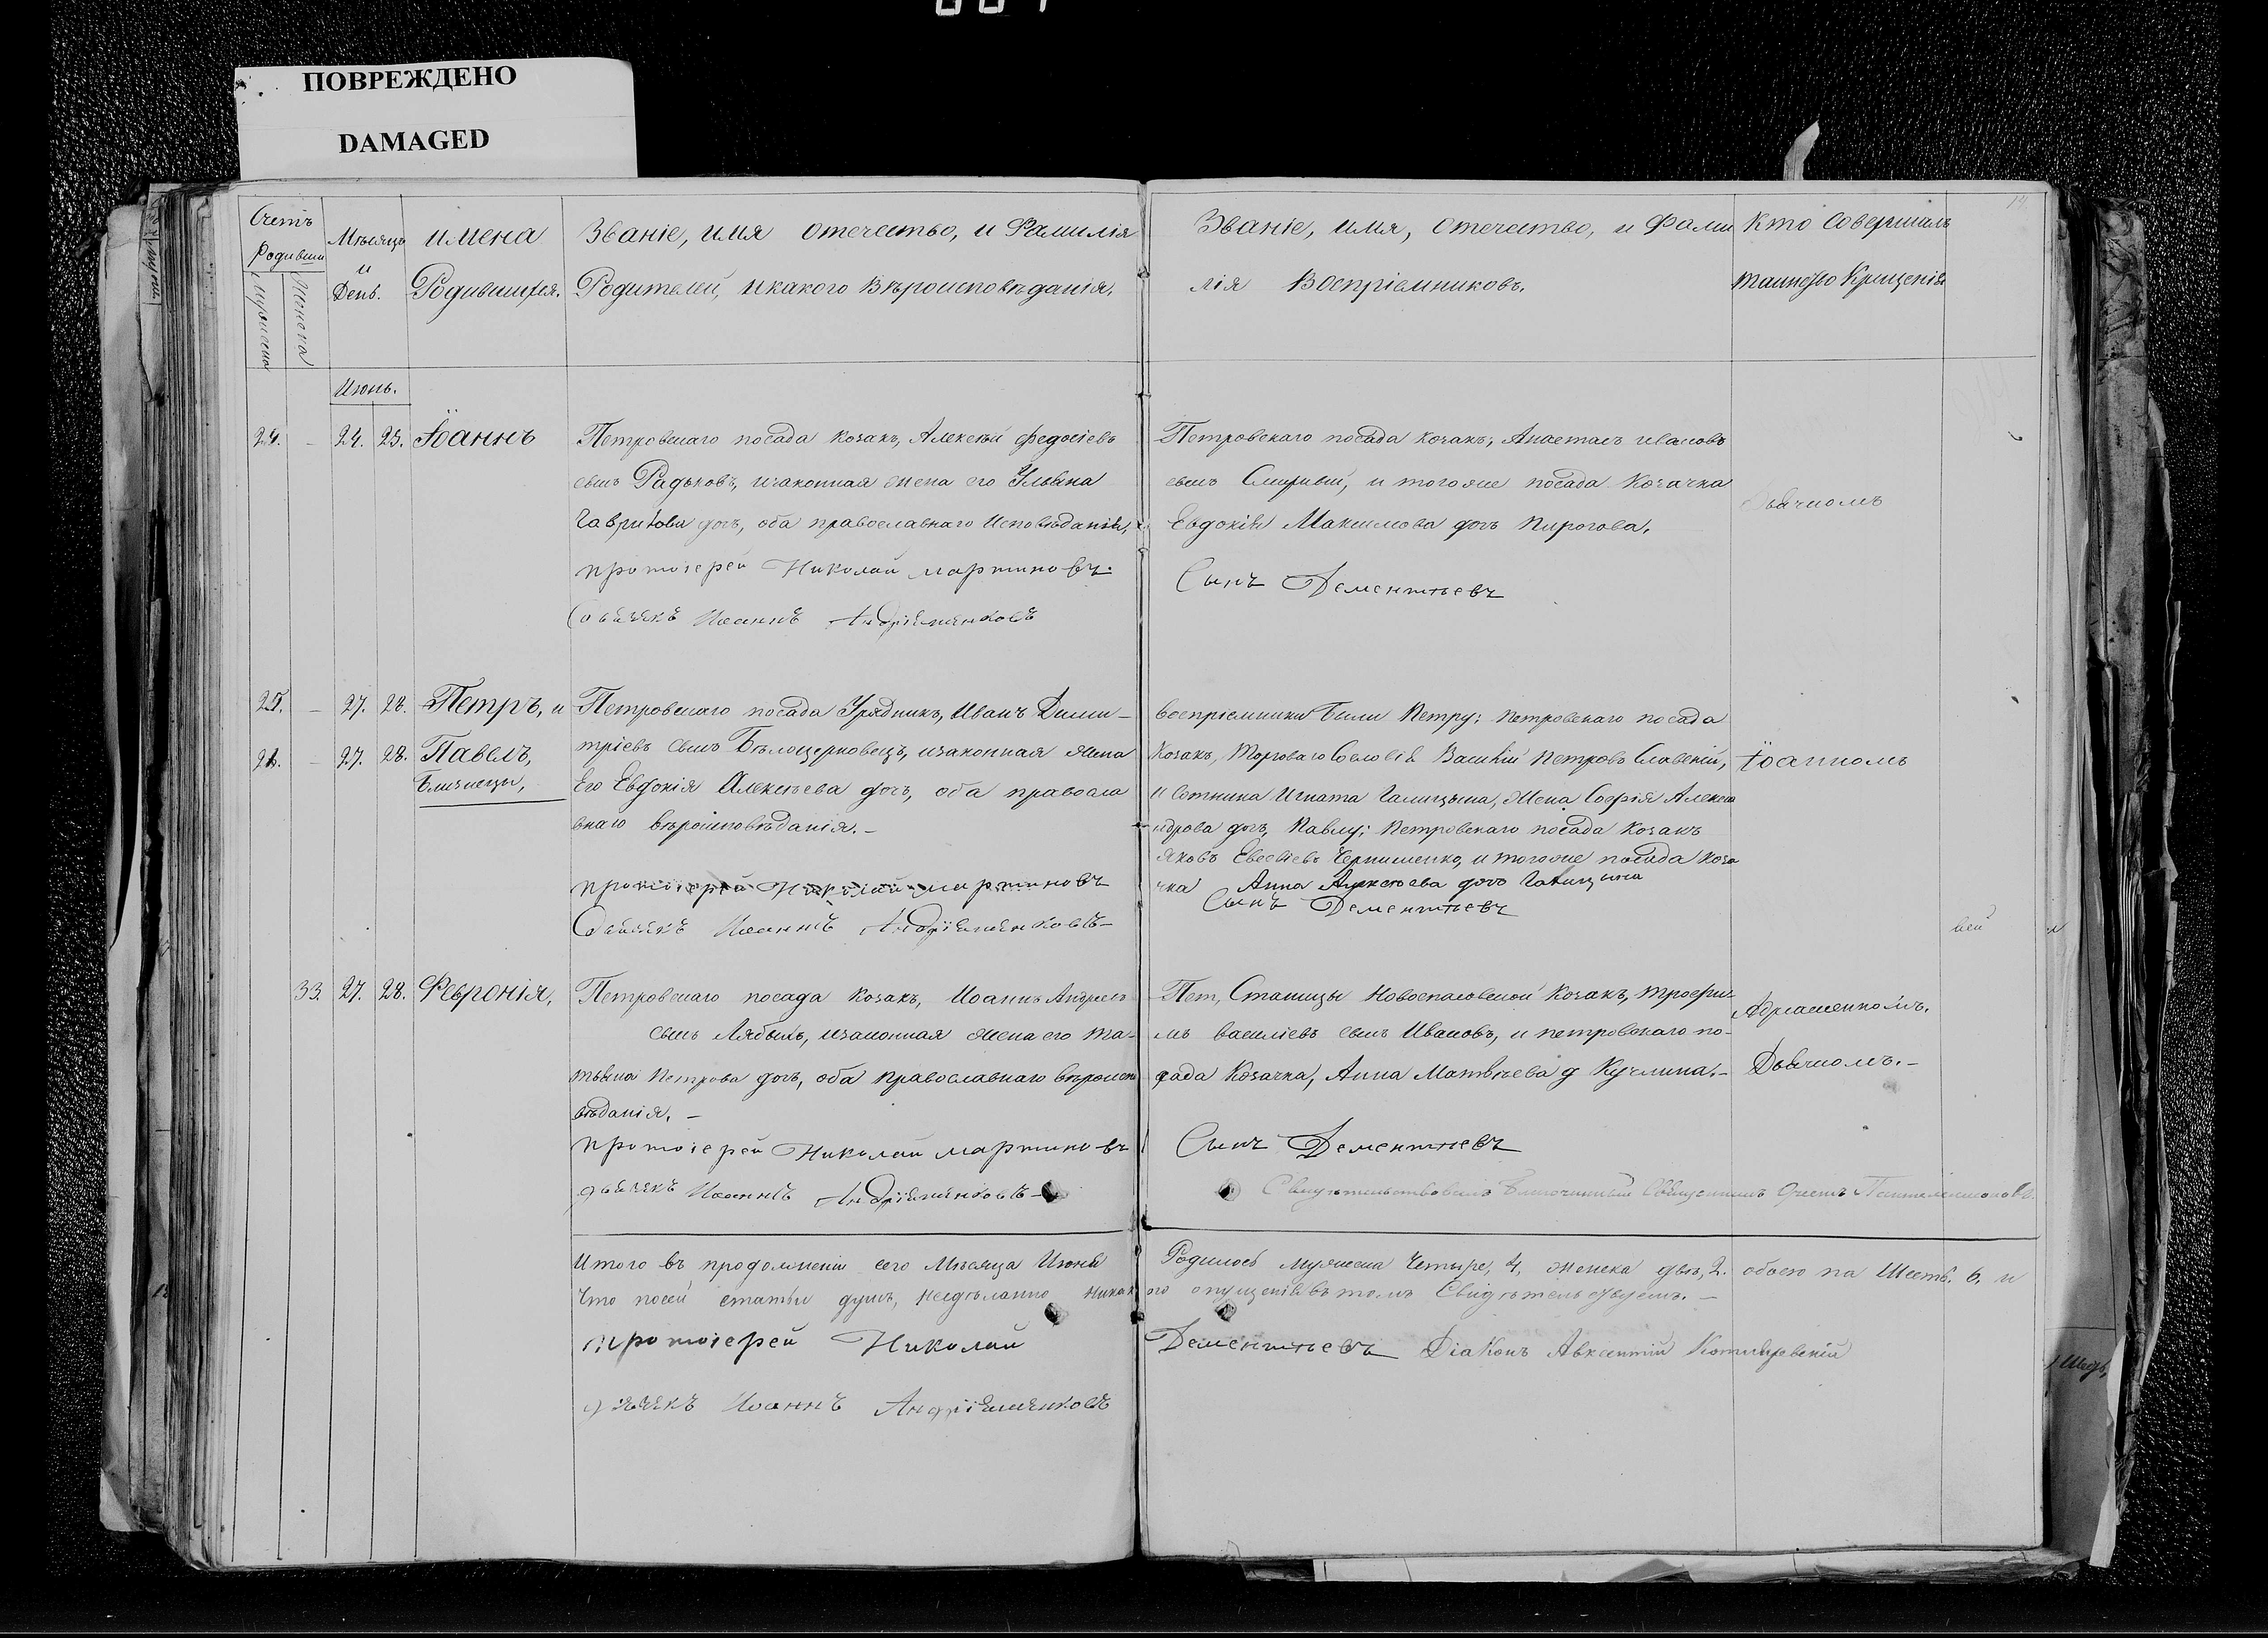 ПОВРЕЖДЕНО
DAMAGED
Счетъ
Родивши
Мужеска
Женска
Мѣсяцъ
и
День.
имена
Родившихся.
Званіе, имя отечество, и Фамилія
Родителей, и какого Вѣроисповѣданія.
Званіе, имя, отечество, и Фами
лія Воспріемниковъ.
Кто совершалъ
таинство Крещенія
Июнь.
24. - 24. 25. Іоаннъ
Петровскаго посада козакъ, Алексѣй Федосіевъ
сынъ Радьковъ, изаконная жена его Ульяна
Гаврилова дочь, оба православнаго Исповѣданія,
протоіерей Николай мартиновъ.
дьячекъ Иоаннъ Андріяшенковъ
Петровскаго посада козакъ, Анастасъ ивановъ
сынъ и тогоже посада Козачка
Евдокія Максимова дочь Пирогова.
Сынъ Дементьевъ
Дьячкомъ
25. - 27. 28. Петръ, и
26. - 27. 28. Павелъ,
Близнецы,
Петровскаго посада Урядникъ, Иванъ Дими-
тріевъ сынъ Бѣлоцерковецъ, изаконная жена
Его Евдокія Алексѣева дочь, оба правосла
внаго вѣроисповѣданія. -
протоіерей Николай мартиновъ
дьячекъ Иоаннъ Андріяшенковъ -
воспріемники Были Петру: петровскаго посада
Козакъ, Торговаго Сословія Василій Петровъ Славскій,
и Сотника Игната Галицына, Жена Софія Алекса
ндрова дочь, Павлу: Петровскаго посада Козакъ
яковъ Евсевіевъ Черниченко, и тогоже посада коза
чка Анна Алексѣева дочь Галицына
Сынъ Дементьевъ
Іоанномъ
33. 27. 28. Февронія,
Петровскаго посада козакъ, Иоаннъ Андреевъ
сынъ Лябыхъ, изаконная жена его та-
тьяна Петрова дочь, оба православнаго вѣроиспо
вѣданія. -
протоіерей Николай мартиновъ
дьячекъ Иоаннъ Андріяшенковъ -
Пет, Станицы Новоспасовской Козакъ, трофи-
мъ василіевъ сынъ Ивановъ, и петровскаго по-
сада Козачка, Анна Матвѣева д Кучлина. -
Сынъ Дементьевъ
Адріашенкомъ.
Дьячкомъ. -
Свидѣтельствовалъ Благочинный Священникъ
Итого въ продолженіи сего Мѣсяца Июня
Родилось мужеска Четыре, 4, женска двѣ, 2. обоего па Шесть. 6. и
Что посей статьи душъ, несдѣланно никак
ого опущенія въ томъ Свидѣтельствуемъ. -
протоіерей Николай
Дементьевъ Діаконъ Авксентій Котляревскій
дьячекъ Иоаннъ Андріяшенковъ